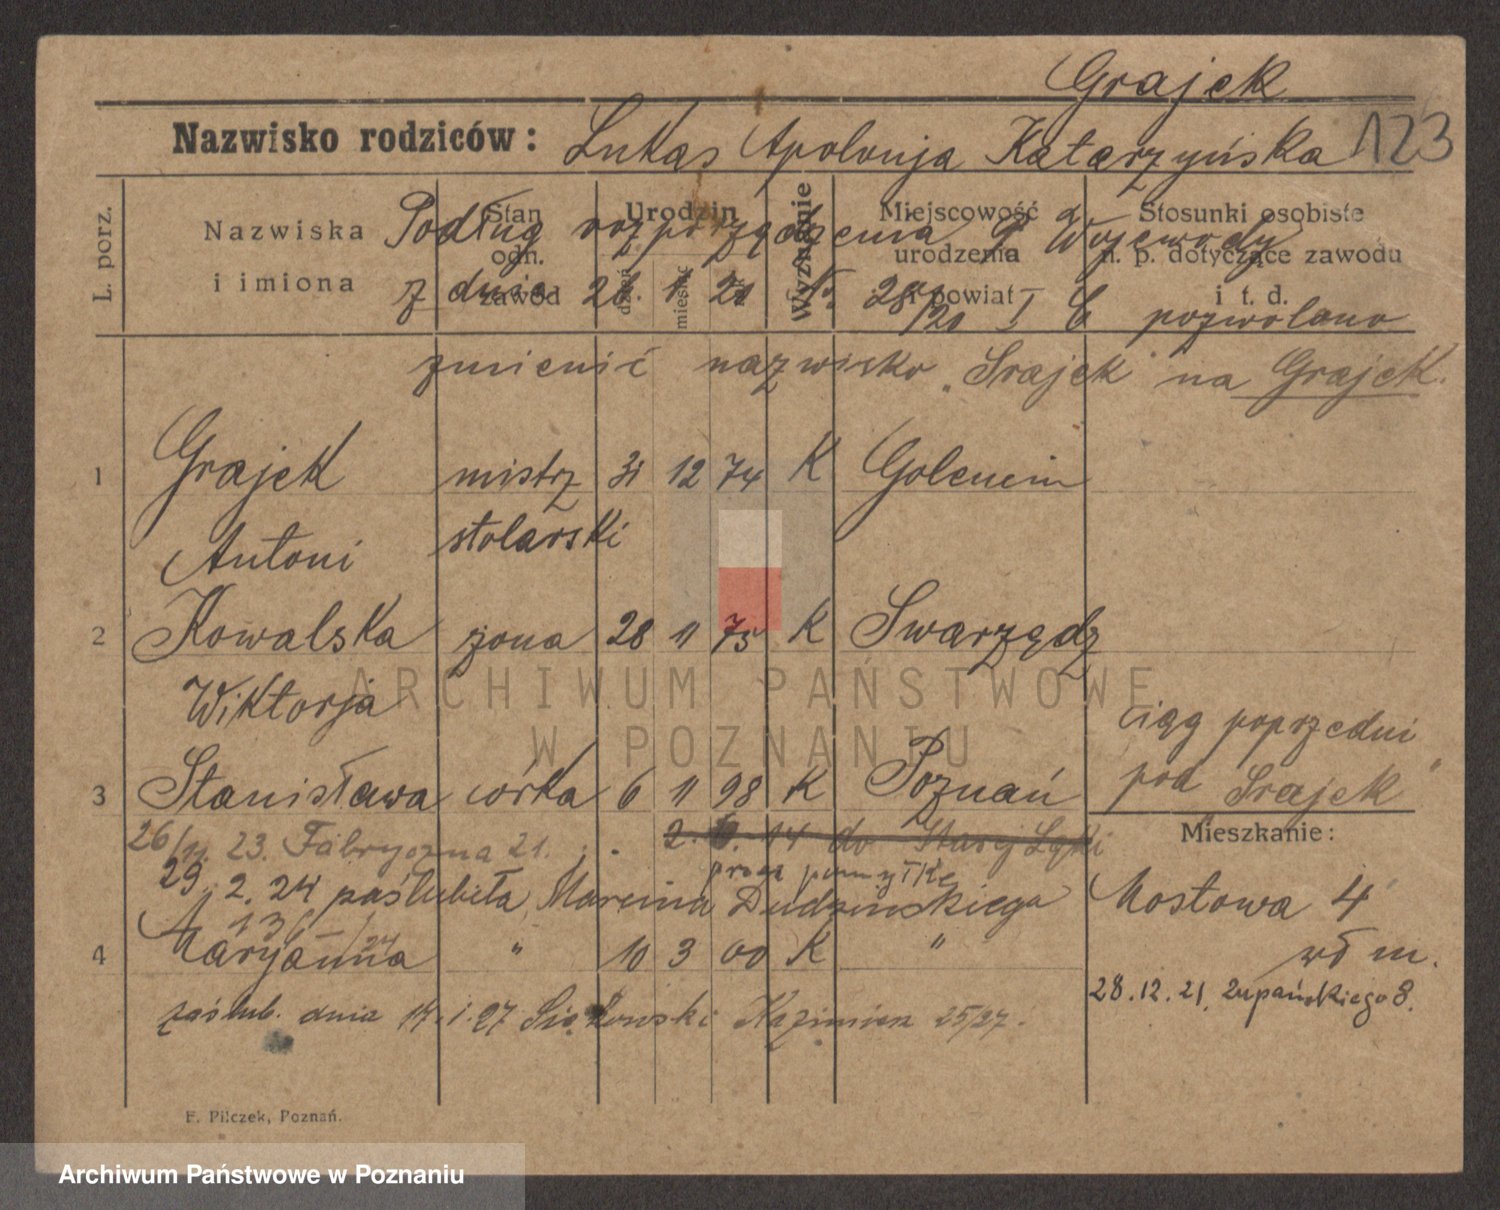 Grajek
Nazwisko rodziców: Lukas Apolonja Katarzyńska 123
L. porz.
Nazwiska i imiona
Stan odn. zawód
Urodzin
dzień
miesiąc
Wyznanie
Miejscowość urodzenia i powiat
Stosunki osobiste n. p. dotyczące zawodu i t. d.
Podług rozporządzenia P. Wojewody
z dnia 26. 1. 21 28/20 I C pozwolano
zmienić nazwisko „Srajek" na Grajek.
1 Grajek mistrz 31 12 74 K Golencin
Antoni stolarski
2 Kowalska żona 28 11 75 K Swarzędz
Wiktorja
ciąg poprzedni
pod „Srajek"
3 Stanisława córka 6 11 98 K Poznań
Mieszkanie:
26/11. 23. Fabryczna 21. 2. 6. 14 do Starej Łąki
przez pomyłkę
29. 2. 24 paślubiła Marcina Dudzińskiego
Mostowa 4
136/24
4 Maryanna " 10 3 00 K "
wł m.
28.12.21. Zupańskiego 8.
zaślub. dnia 17.1.27 Kazimierz 25/27.
F. Pilczek, Poznań.
ARCHIWUM PAŃSTWOWE
W POZNANIU
Archiwum Państwowe w Poznaniu